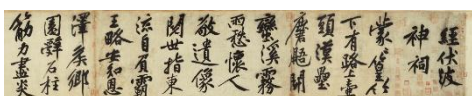 經伏波
神祠
蒙〻篁竹
下有路上壺
頭漢壘
麏鼯鬭
蠻溪霧
雨愁懷人
敬遺像
閱世指東
流自負霸
王略安知恩
澤侯鄉
園辭石柱
筋力盡炎